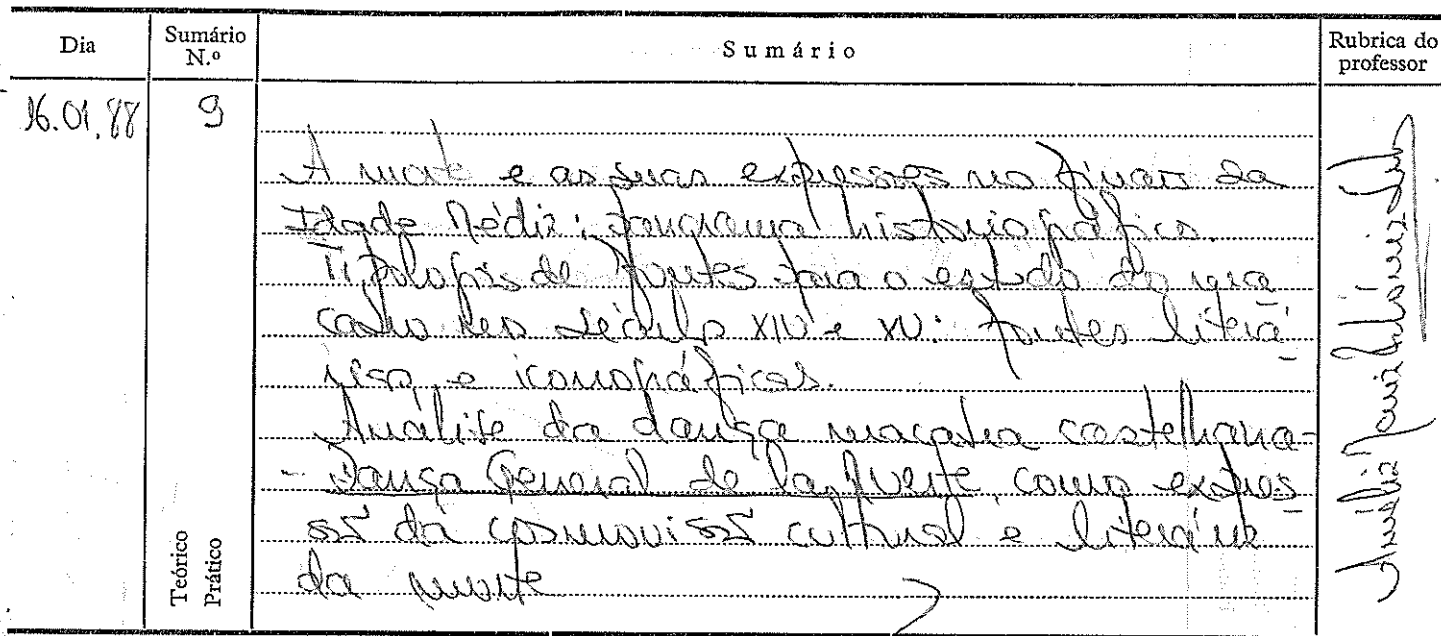 Dia
Sumário N.º
Sumário
Rubrica do professor
16.01.88
9
A morte e as suas expressões no finais da
Idade Média: panorama historiográfico.
Tipologia de fontes para o estudo do ma
cabro nos séculos XIV e XV: fontes literá-
rias, e iconográficas.
Análise da dança macabra castelhana-
- Dança General de la Muerte, como expres
são da cosmovisão cultural e literária
da morte
Teórico
Prático
Amélia Maria